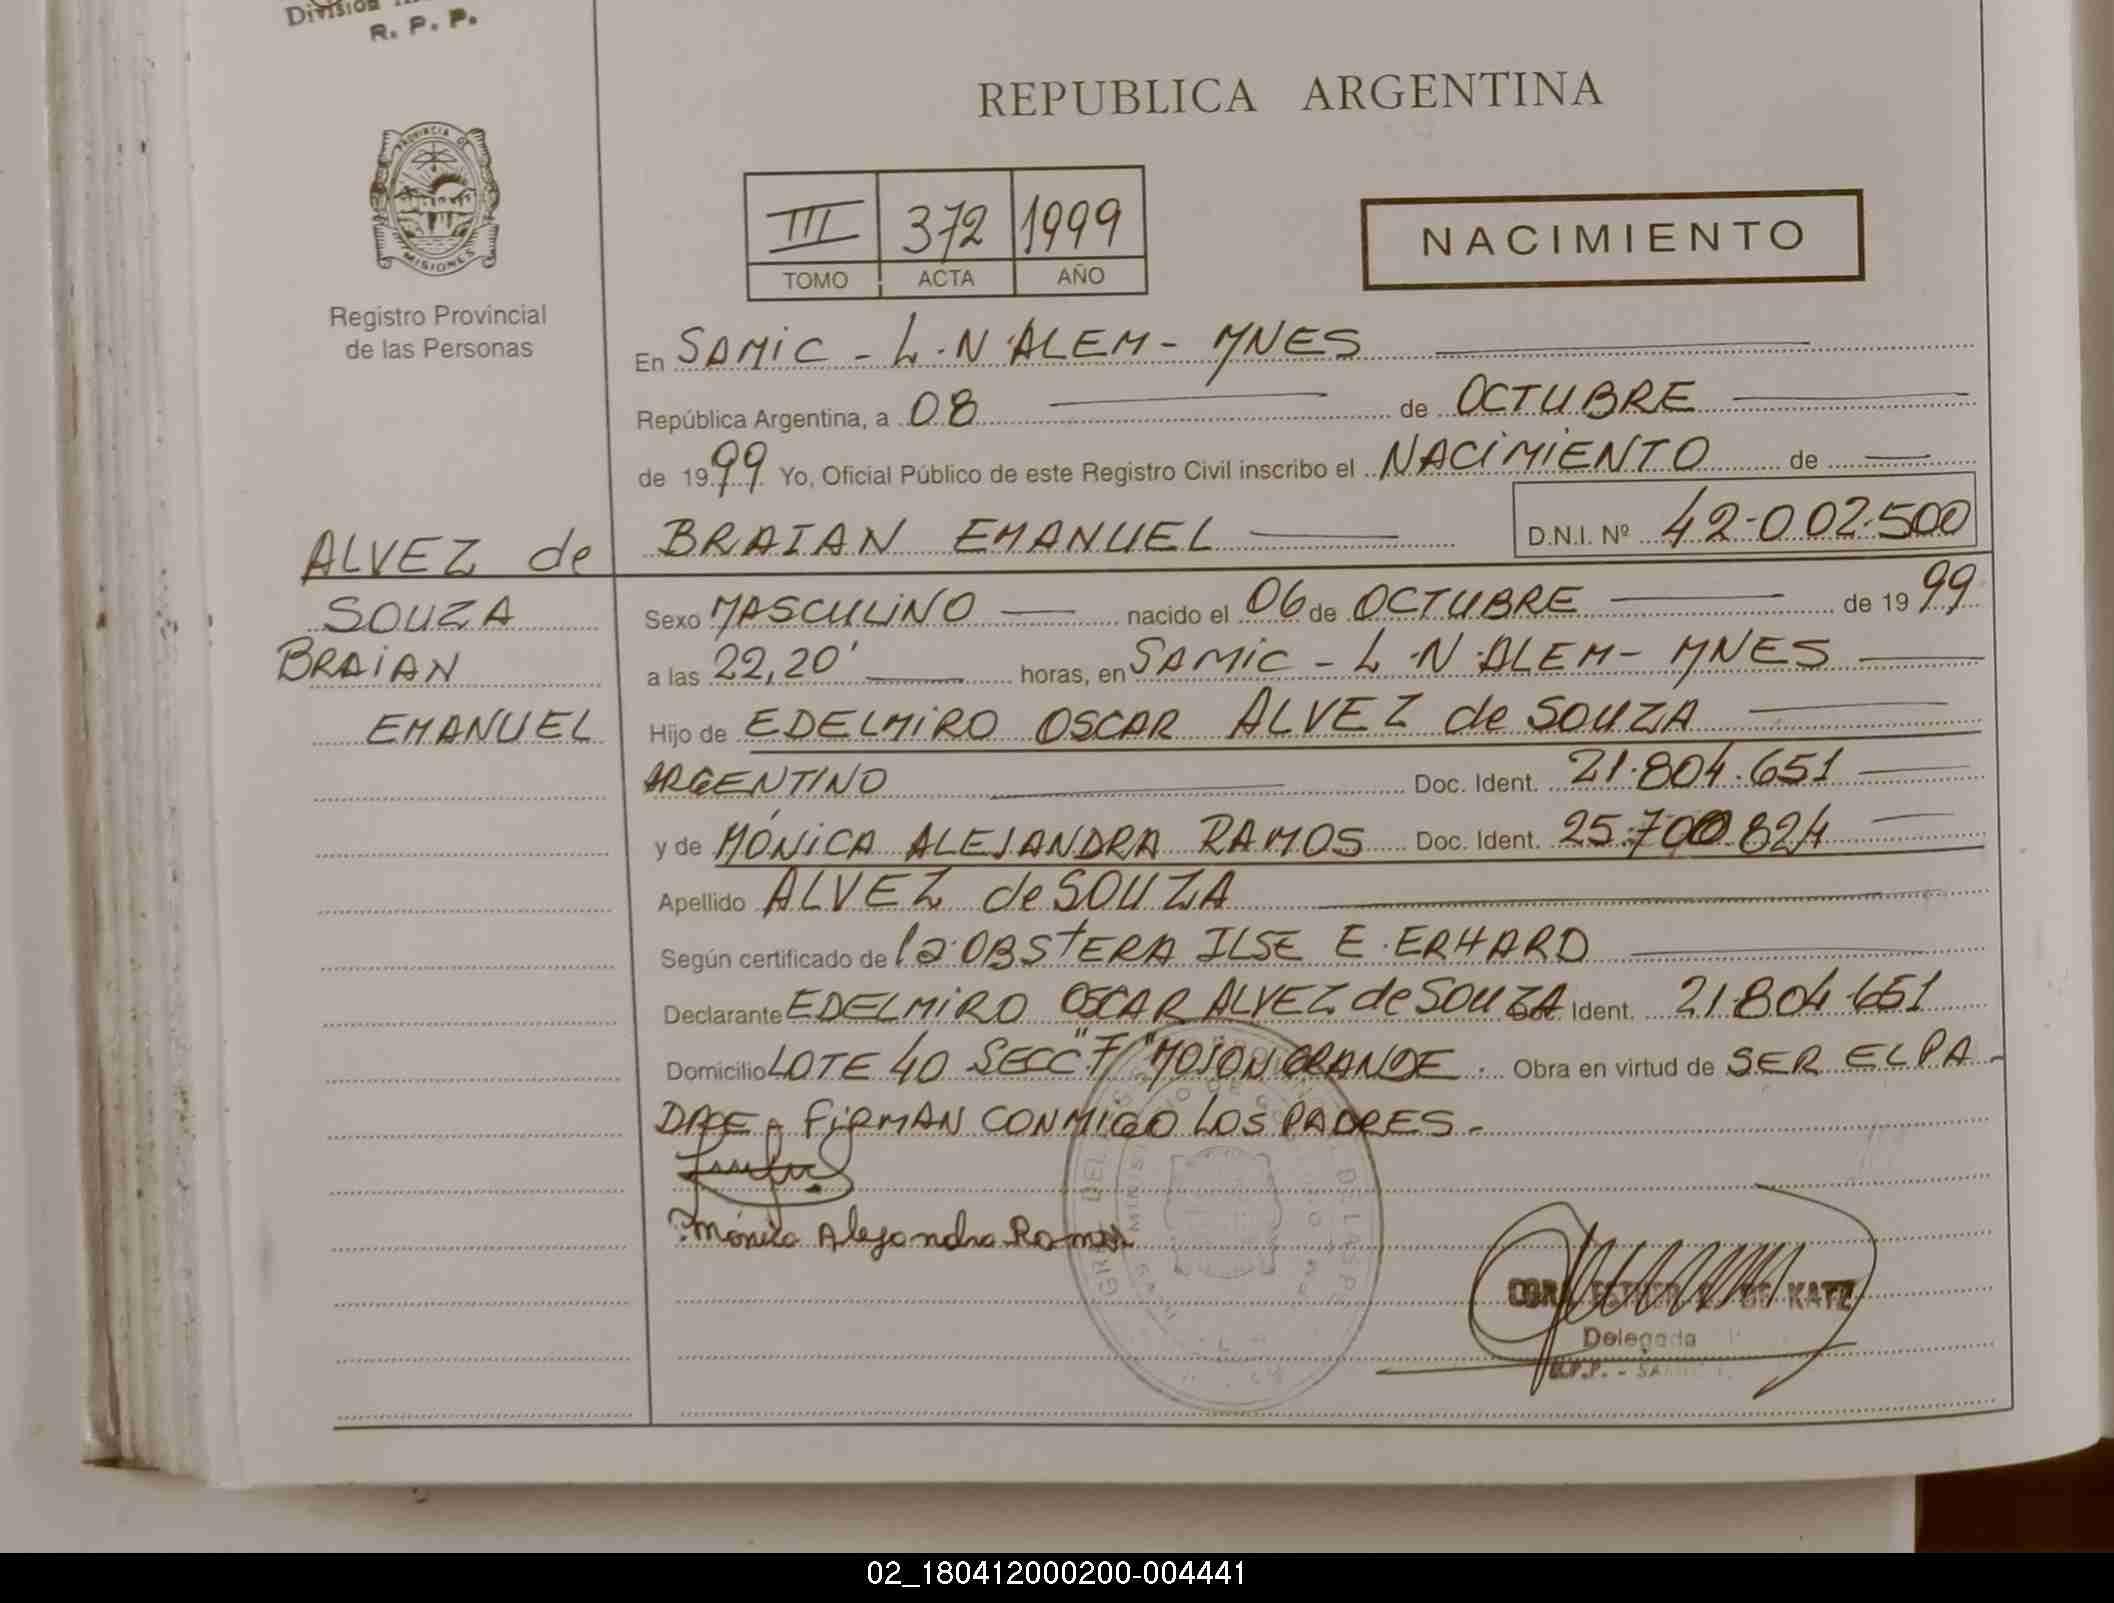 División
R. P. P.
REPUBLICA ARGENTINA
PROVINCIA DE
MISIONES
Registro Provincial
de las Personas
III 372 1999
TOMO ACTA AÑO
NACIMIENTO
En SAMIC - L.N. ALEM - MNES
República Argentina, a 08 de OCTUBRE
de 1999 Yo, Oficial Público de este Registro Civil inscribo el NACIMIENTO de
ALVEZ de BRAIAN EMANUEL D.N.I. Nº 42.002.500
SOUZA Sexo MASCULINO nacido el 06 de OCTUBRE de 1999
BRAIAN a las 22,20' horas, en SAMIC - L.N. ALEM - MNES
EMANUEL Hijo de EDELMIRO OSCAR ALVEZ de SOUZA
ARGENTINO Doc. Ident. 21.804.651
y de MÓNICA ALEJANDRA RAMOS Doc. Ident. 25.700.824
Apellido ALVEZ de SOUZA
Según certificado de la OBSTERA ILSE E. ERHARD
Declarante EDELMIRO OSCAR ALVEZ de SOUZA Doc. Ident. 21.804.651
Domicilio LOTE 40 SECC "F" MOJON GRANDE. Obra en virtud de SER EL PA-
DRE - FIRMAN CONMIGO LOS PADRES.-
Mónica Alejandra Ramos
ESTHER DE KATZ
Delegada
R.P.P. - SA
02_180412000200-004441